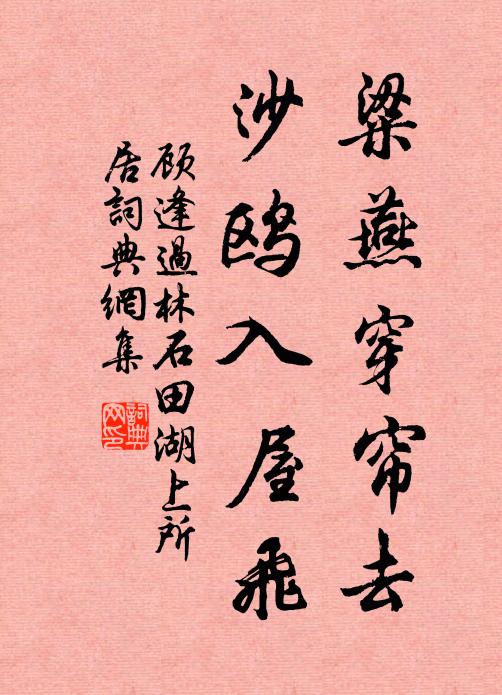 梁燕穿帘去
沙鸥入屋飛
顾逢過林石田湖上所
居詞典網集
詞典
网印